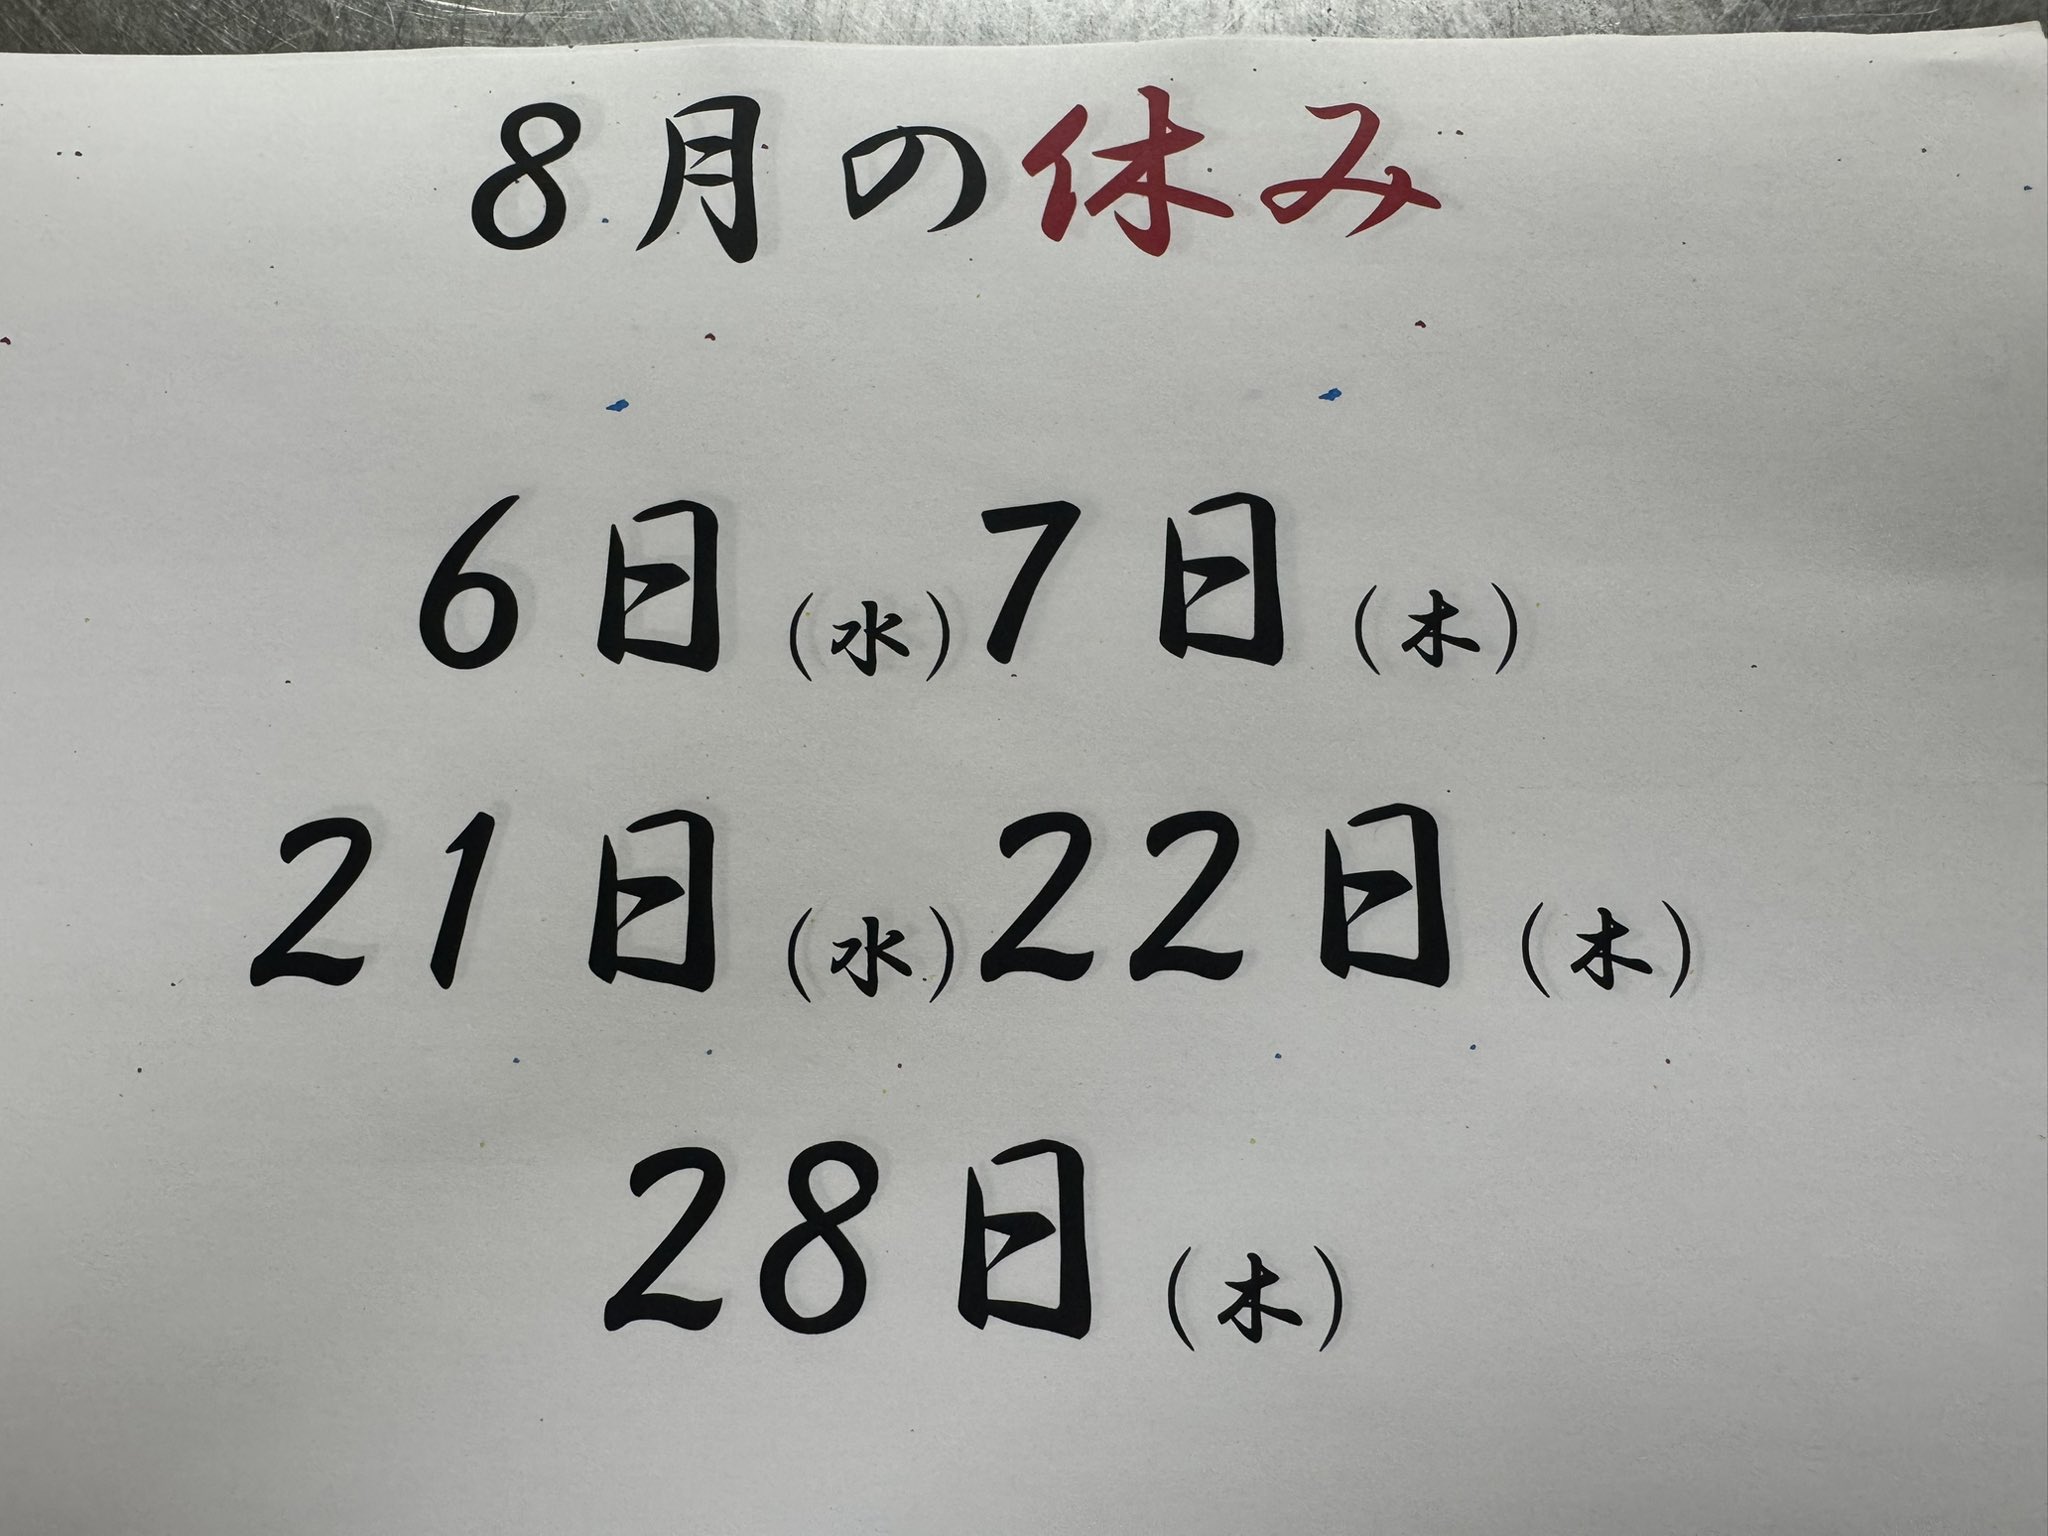 8月の休み
6日(水)7日(木)
21日(水)22日(木)
28日(木)